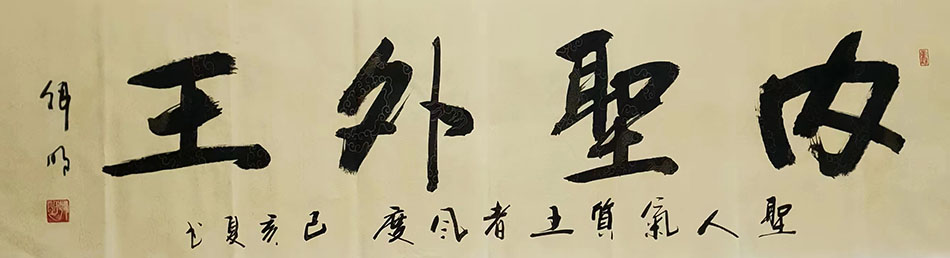 内聖外王
聖人氣質王者风度 己亥夏书